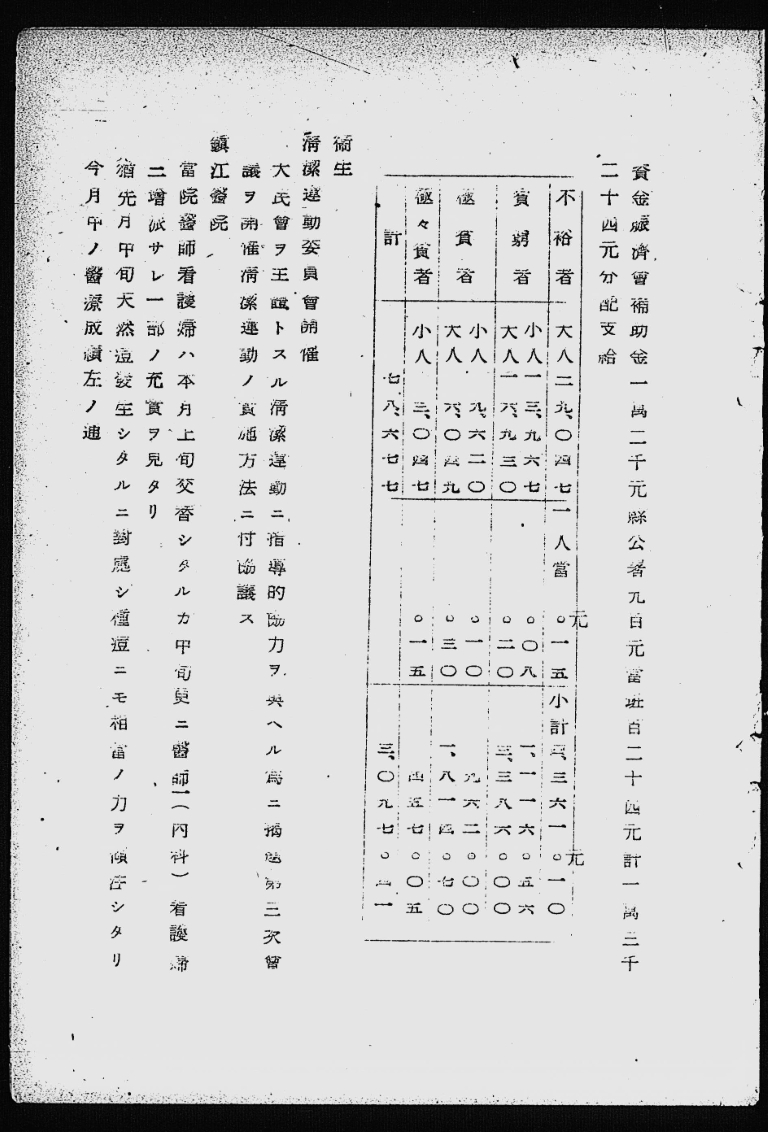 資金賑濟會補助金一萬二千元縣公署九百元當班百二十四元計一萬三千
二十四元分配支給
不裕者 大人二九、〇四七 一人當 元 〇一五 小計 三六一 元 〇一〇
貧弱者 小人一三、九六七 〇〇八 一、一一六 〇五六
大人一六、九三〇 〇二〇 三、三八六 〇〇〇
極貧者 小人 九、六二〇 〇一〇 九六二 〇〇〇
大人 六、〇四九 〇三〇 一、八一四 〇七〇
極々貧者 小人 三、〇四七 〇一五 四五七 〇〇五
計 七八、六七七 三、〇九七
衞生
淸潔運動委員會開催
大民會ヲ主體トスル淸潔運動ニ指導的協力ヲ與ヘル爲ニ第三次會
議ヲ開催淸潔運動ノ實施方法ニ付協議ス
鎭江醫院
當院醫師看護婦ハ本月上旬交替シタルカ中旬更ニ醫師一(內科)看護婦
二增派サレ一部ノ充實ヲ見タリ
猶先月中旬天然痘發生シタルニ對應シ種痘ニモ相當ノ力ヲ傾注シタリ
今月中ノ醫療成績左ノ通